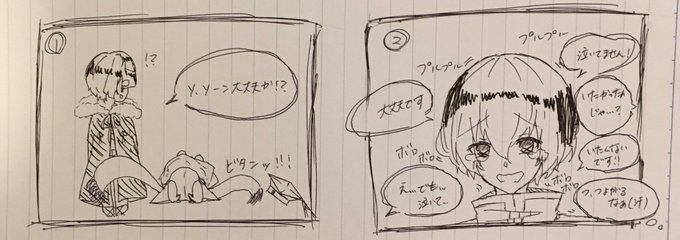 ①
!?
y、ソーン大丈夫か!?
ビタンッ!!!
②
プルプル
プルプル
泣いてません!
大丈夫です
いたかったん
じゃ…?
いたくない
です!!
ボロ
ボロ
えっ…でも…
泣いて…
ボロ
ボロ
つ、つよがる
なぁ(汗)